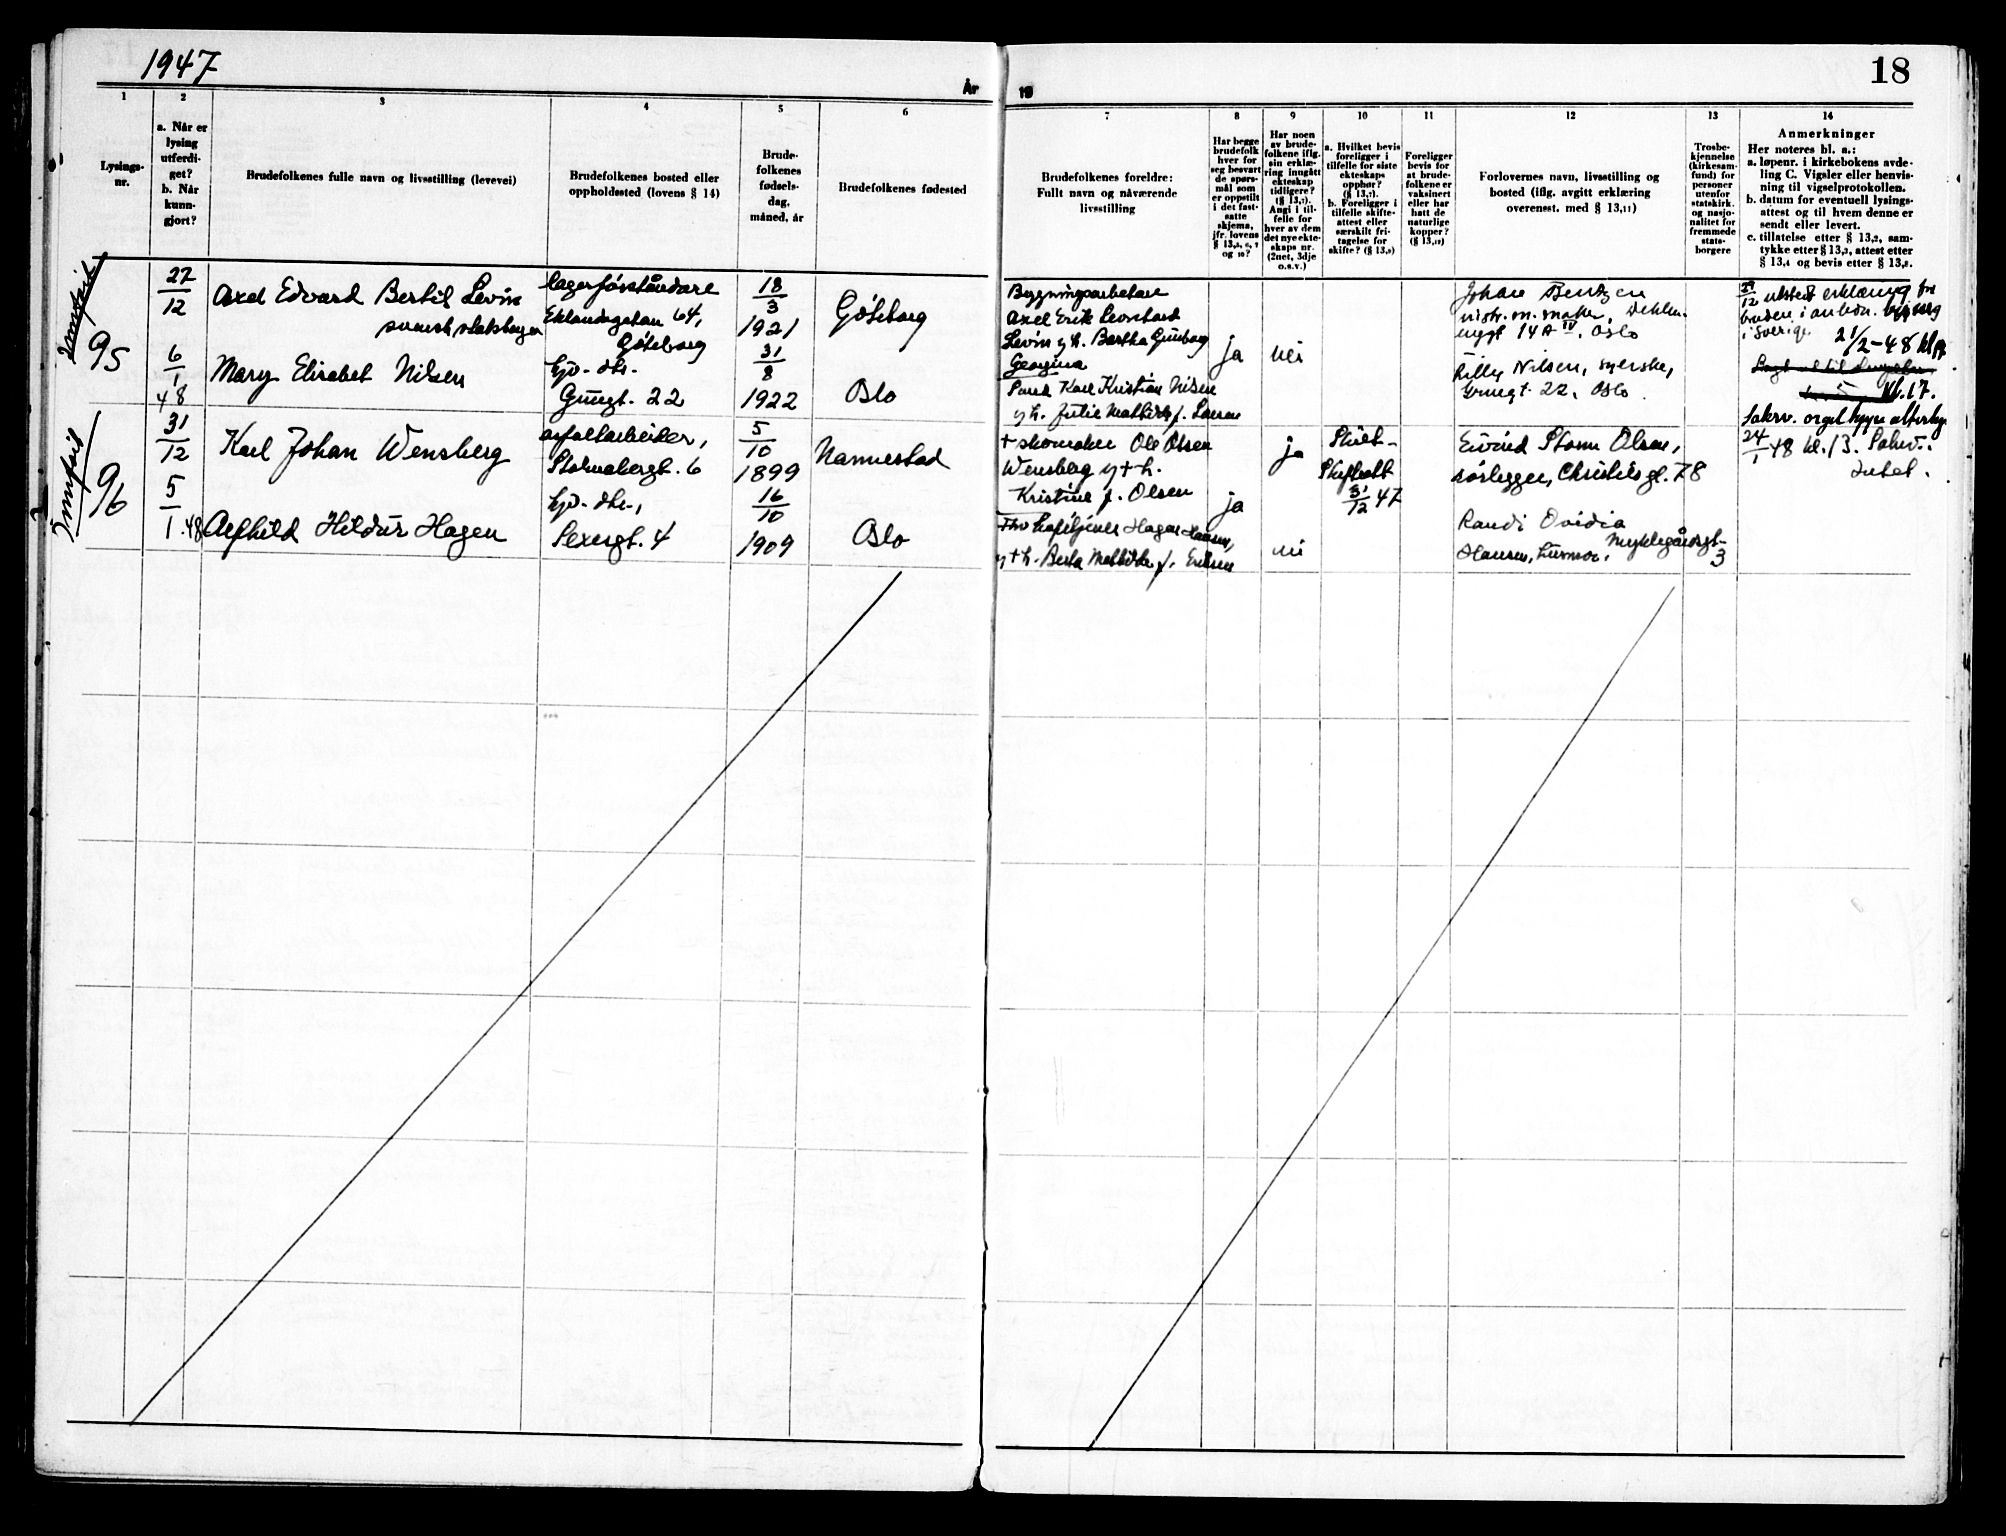 1947
År
19
18
1
2
3
4
5
6
7
8
9
10
11
12
13
14
Lysings-
nr.
a. Når er
lysing
utferdi-
get?
b. Når
kunn-
gjort?
Brudefolkenes fulle navn og livsstilling (levevei)
Brudefolkenes bosted eller
oppholdssted (lovens § 14)
Brude-
folkenes
fødsels-
dag,
måned, år
Brudefolkenes fødested
Brudefolkenes foreldre:
Fullt navn og nåværende
livsstilling
Har begge
brudefolk
hver for
seg besvart
de spørs-
mål som
er oppstilt
i det fast-
satte
skjema,
jfr. lovens
og 10?
Har noen
av brude-
folkene iflg.
sin erklæ-
ring inngått
ekteskap
tidligere?
Angi i til-
felle for
hver av dem
det nye ekte-
skaps nr.
(2net, 3dje
o.s.v.)
a. Hvilket bevis
foreligger i
tilfelle for siste
ekteskaps
opphør?
b. Foreligger i
tilfelle skifte-
attest eller
særskilt fri-
tagelse for
skifte?
Foreligger
bevis for
at brude-
folkene er
vaksinert
eller har
hatt de
naturlige
kopper?
Forlovernes navn, livsstilling og
bosted (iflg. avgitt erklæring
overenst. med § 13,11)
Trosbe-
kjennelse
(kirkesam-
fund) for
personer
utenfor
statskirk.
og nasjo-
nalitet for
fremmede
stats-
borgere
Anmerkninger
Her noteres bl. a.:
a. løpenr. i kirkebokens avde-
ling C. Vigsler eller henvis-
ning til vigselprotokollen.
b. datum for eventuell lysings-
attest og til hvem denne er
sendt eller levert.
c. tillatelse etter § 13,2, sam-
tykke etter § 13,3, attest etter
§ 13,4 og bevis etter § 13,8.
95
27/12
Axel Edvard Bertil Levin
svensk statsborger
lagerföreståndare
Eklandagatan 64,
Göteborg
18/3
1921
Göteborg
Bygningsarbetare
Axel Erik
Levin g.h. Bertha Gunborg
Georgina
ja
nei
Johan Bentzen
IV. Oslo
utstedt erklæring
i Sverige
21/2-48
6/1
48
Mary Elisabet Nilsen
Gruegt. 22
31/8
1922
Oslo
Karl Kristian Nilsen
g.h. Julie Mathilde f. Larsen
Lilly Nilsen, syerske,
Gruegt. 22, Oslo.
kl. 17.
96
31/12
Karl Johan Wensberg
asfaltarbeider,
5/10
1899
Nannestad
+ skomaker Ole Olsen
Wensberg g + h.
Kristine f. Olsen
ja
31/12 47
Eivind Storm Olsen,
rørlegger, Christies gt. 78
24/1 48 kl. 13.
5/1.48
Alfhild Hildur Hagen
Sexesgt. 4
16/10
1909
Oslo
g + h. Berta Mathilde f. Eriksen
ja
nei
Randi Ovidia
Hansen, husmor, Myklegårdsgt.
3